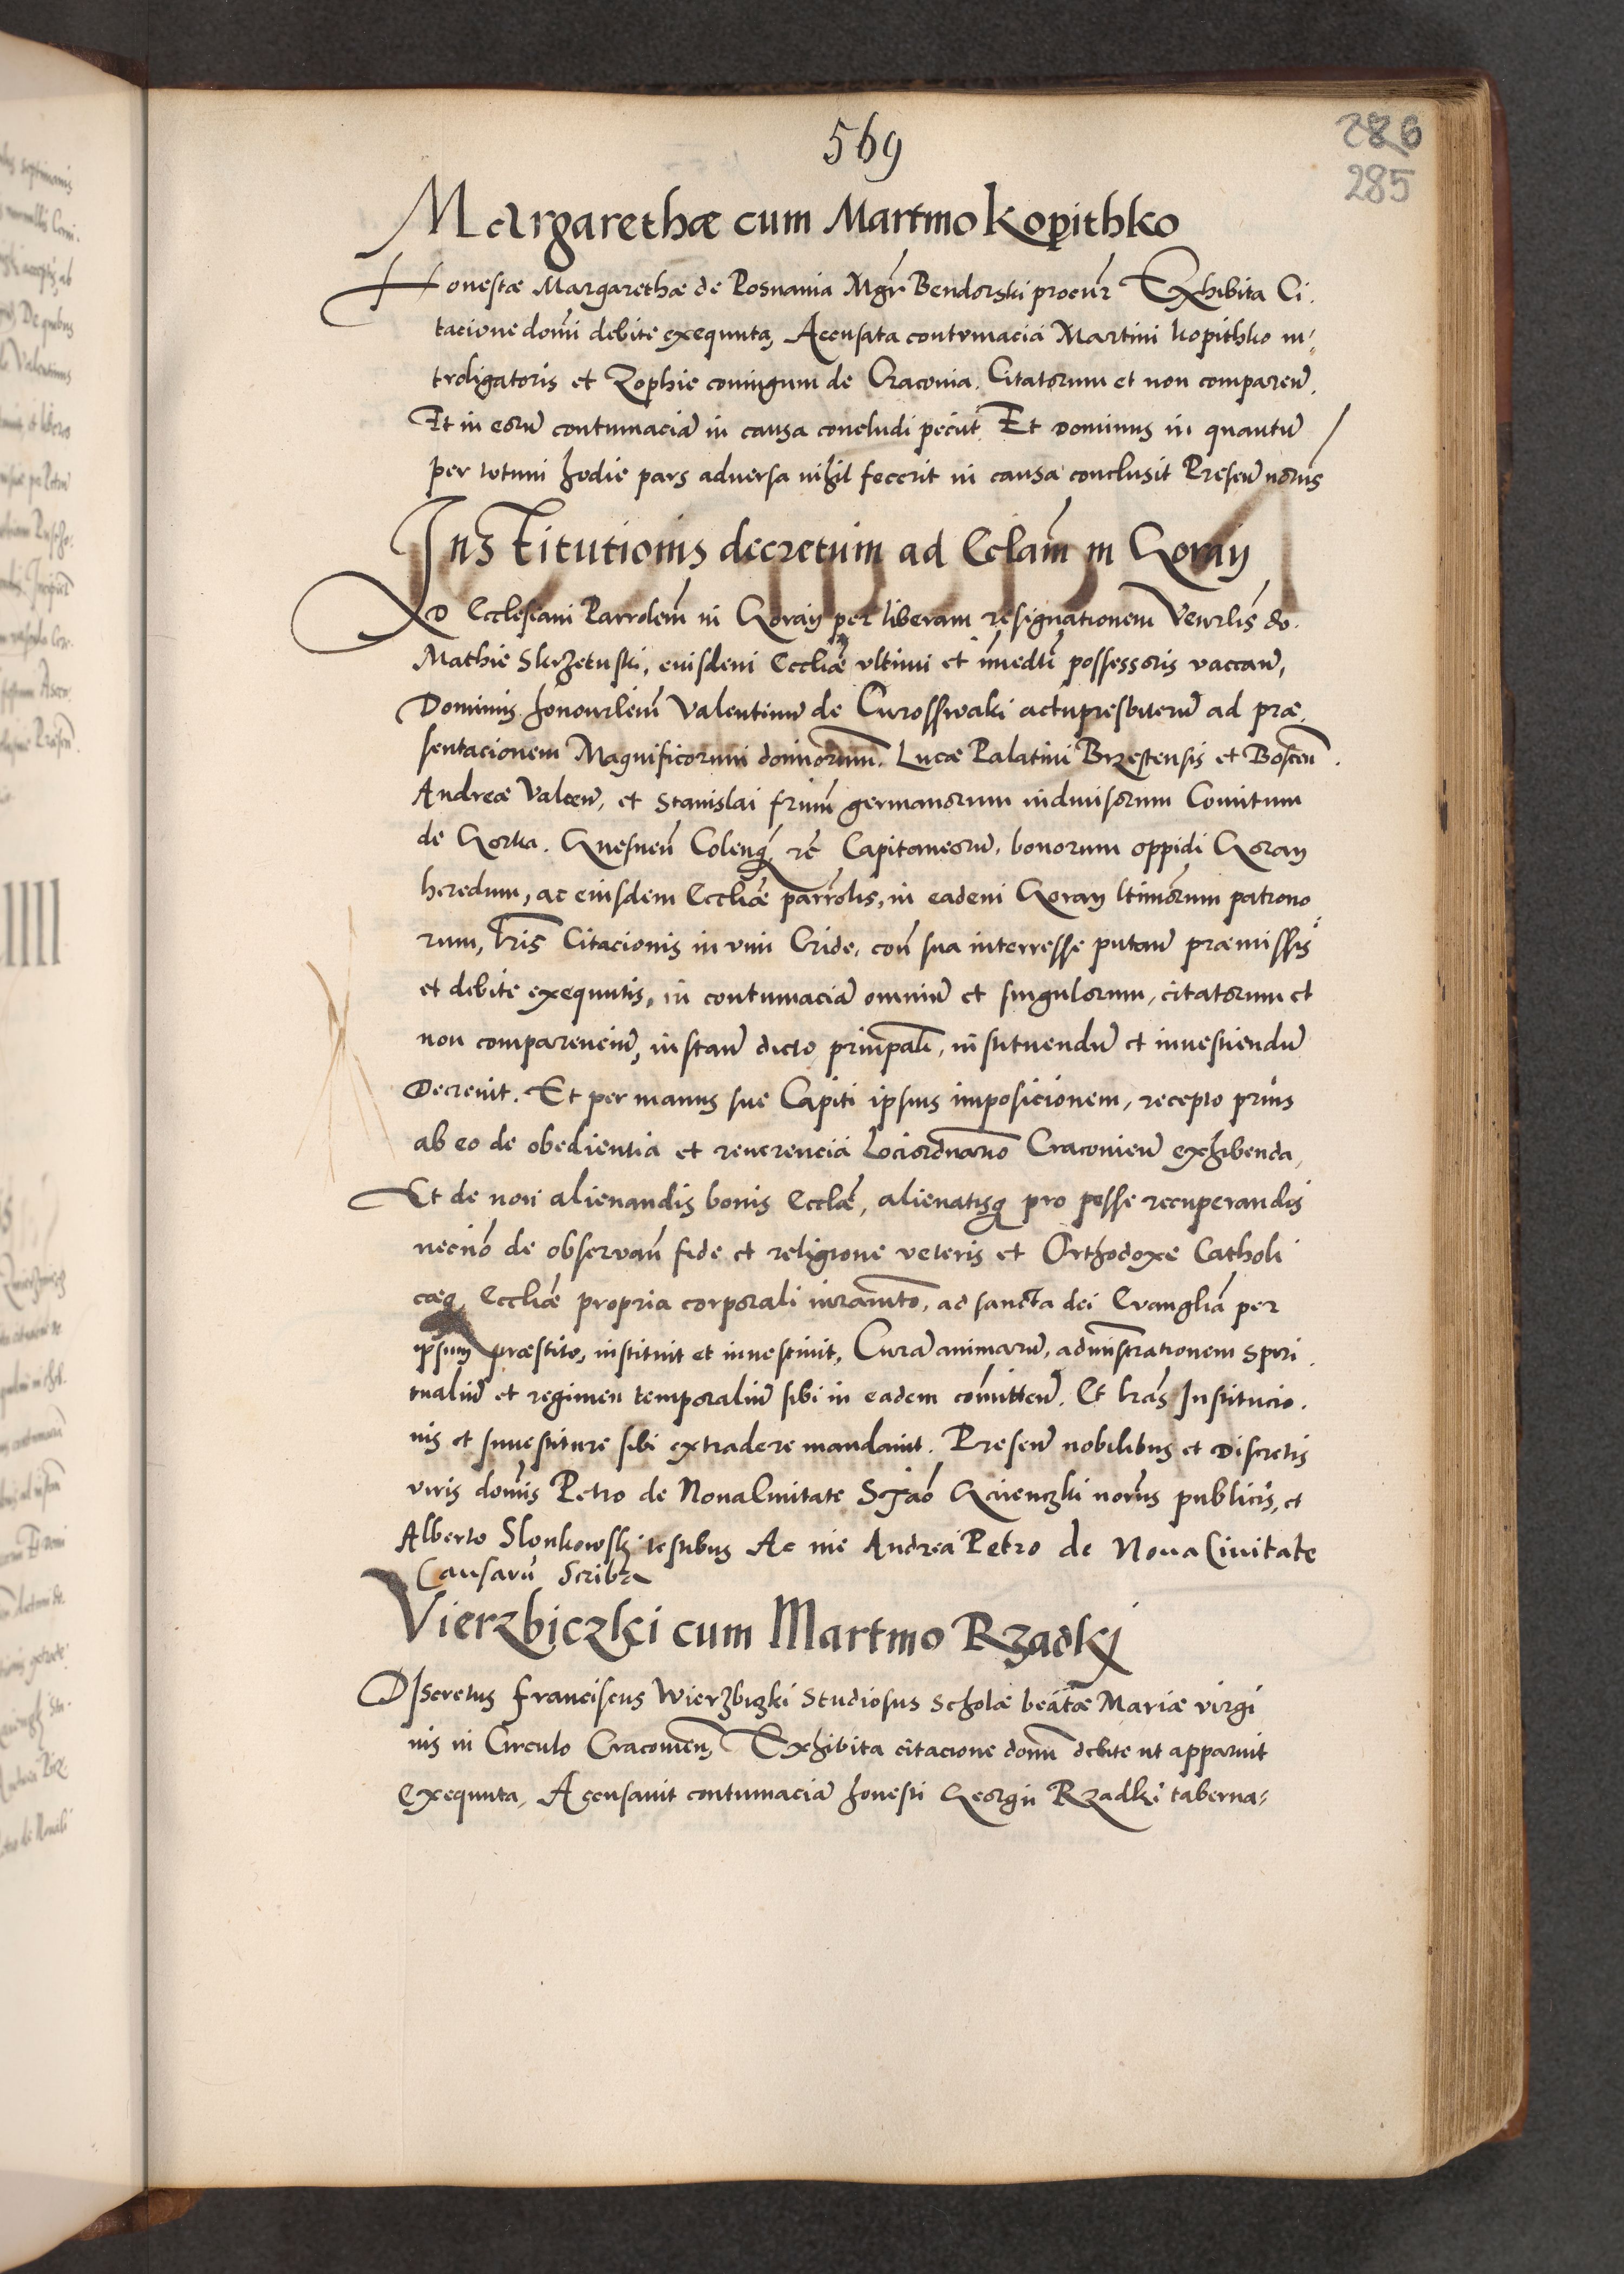 569
286
285
Margarethæ cum Martino Kopithko
Honestæ Margarethæ de Posnania Mgr Bendorski procur Exhibita Ci.
tacione domi debite exequuta, Accusata contumacia Martini kopithko in-
troligatoris et Zophie coniugum de Cracovia. Citatorum et non comparen.
Et in eorum contumaciā in causa concludi peciit. Et Dominus in quantū
per totum hodie pars adversa nihil fecerit in causa conclusit Presen noris
Institutionis decretum ad Eclam in Goray
AD Ecclesiam Parrolem in Goray per liberam resignationem Venrlis do.
Mathie Skrzetuski, eiusdem Eccliæ ultimi et imedti possessoris vaccan,
Dominus honourlem Valentinū de Curosswaki actupresbiterū ad præ.
sentacionem Magnificorum dominorum. Lucæ Palatini Brzestensis et Boscen.
Andreæ Valcen, et Stanislai frum germanorum indivisorum Comitum
de Gorka. Gnesnen Colenq. re Capitaneorū, bonorum oppidi Goray
heredum, ac eiusdem Eccliæ parrolis, in eadem Goray ltimorum patrono
rum, lris Citacionis in vim Cride, con sua interresse putan præmissis
et debite exequutis, in contumaciā omniū et singulorum, citatorum et
non comparenciū, instan dicto principali, instituendū et investiendū
Decrevit. Et per manus sue Capiti ipsius imposicionem, recepto prius
ab eo de obedientia et reverencia Lociordinario Cracovien exhibenda,
Et de non alienandis bonis Ecclæ, alienatisq pro posse recuperandis
necno de observan fide et religione veteris et Orthodoxe Catholi
cæq Eccliæ propria corporali iuramto, ad sancta dei Evanglia per
ipsum præstito, instituit et investivit, Curā animarū, adminstrationem spiri.
tualiū et regimen temporaliū sibi in eadem comitten. Et lras Institucio.
nis et Investiture sibi extradere mandavit. Presen nobilibus et Discretis
viris domis Petro de Nova Civitate Stao Gienczki noris publicis, et
Alberto Slonkowski testibus Ac me Andrea Petro de Nova Civitate
Causarū Scriba
Vierzbiczki cum Martino Rzadki
DIscretus Franciscus Wierzbiczki Studiosus Scholæ beatæ Mariæ virgi
nis in Circulo Cracovien, Exhibita citacione domi debite ut apparuit
exequuta, Accusavit contumaciā honesti Georgii Rzadki taberna-